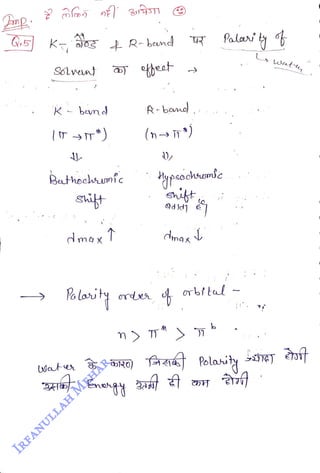 Imp. है लेकिन नहीं आयेगा
Q.5 K- बैंड & R-band पर Polarity of
Solvent का effect → water
K - band R-band
(π → π*) (n → π*)
⇓ ⇓
Bathochromic Hypsochromic
shift shift
करता है
dmax ↑ dmax ↓
→ Polarity order of orbital -
n > π* > π b
water के कारण जिसकी Polarity ज्यादा होगी
उसकी Energy उतनी ही कम होगी
IRFANULLAH MEHAR